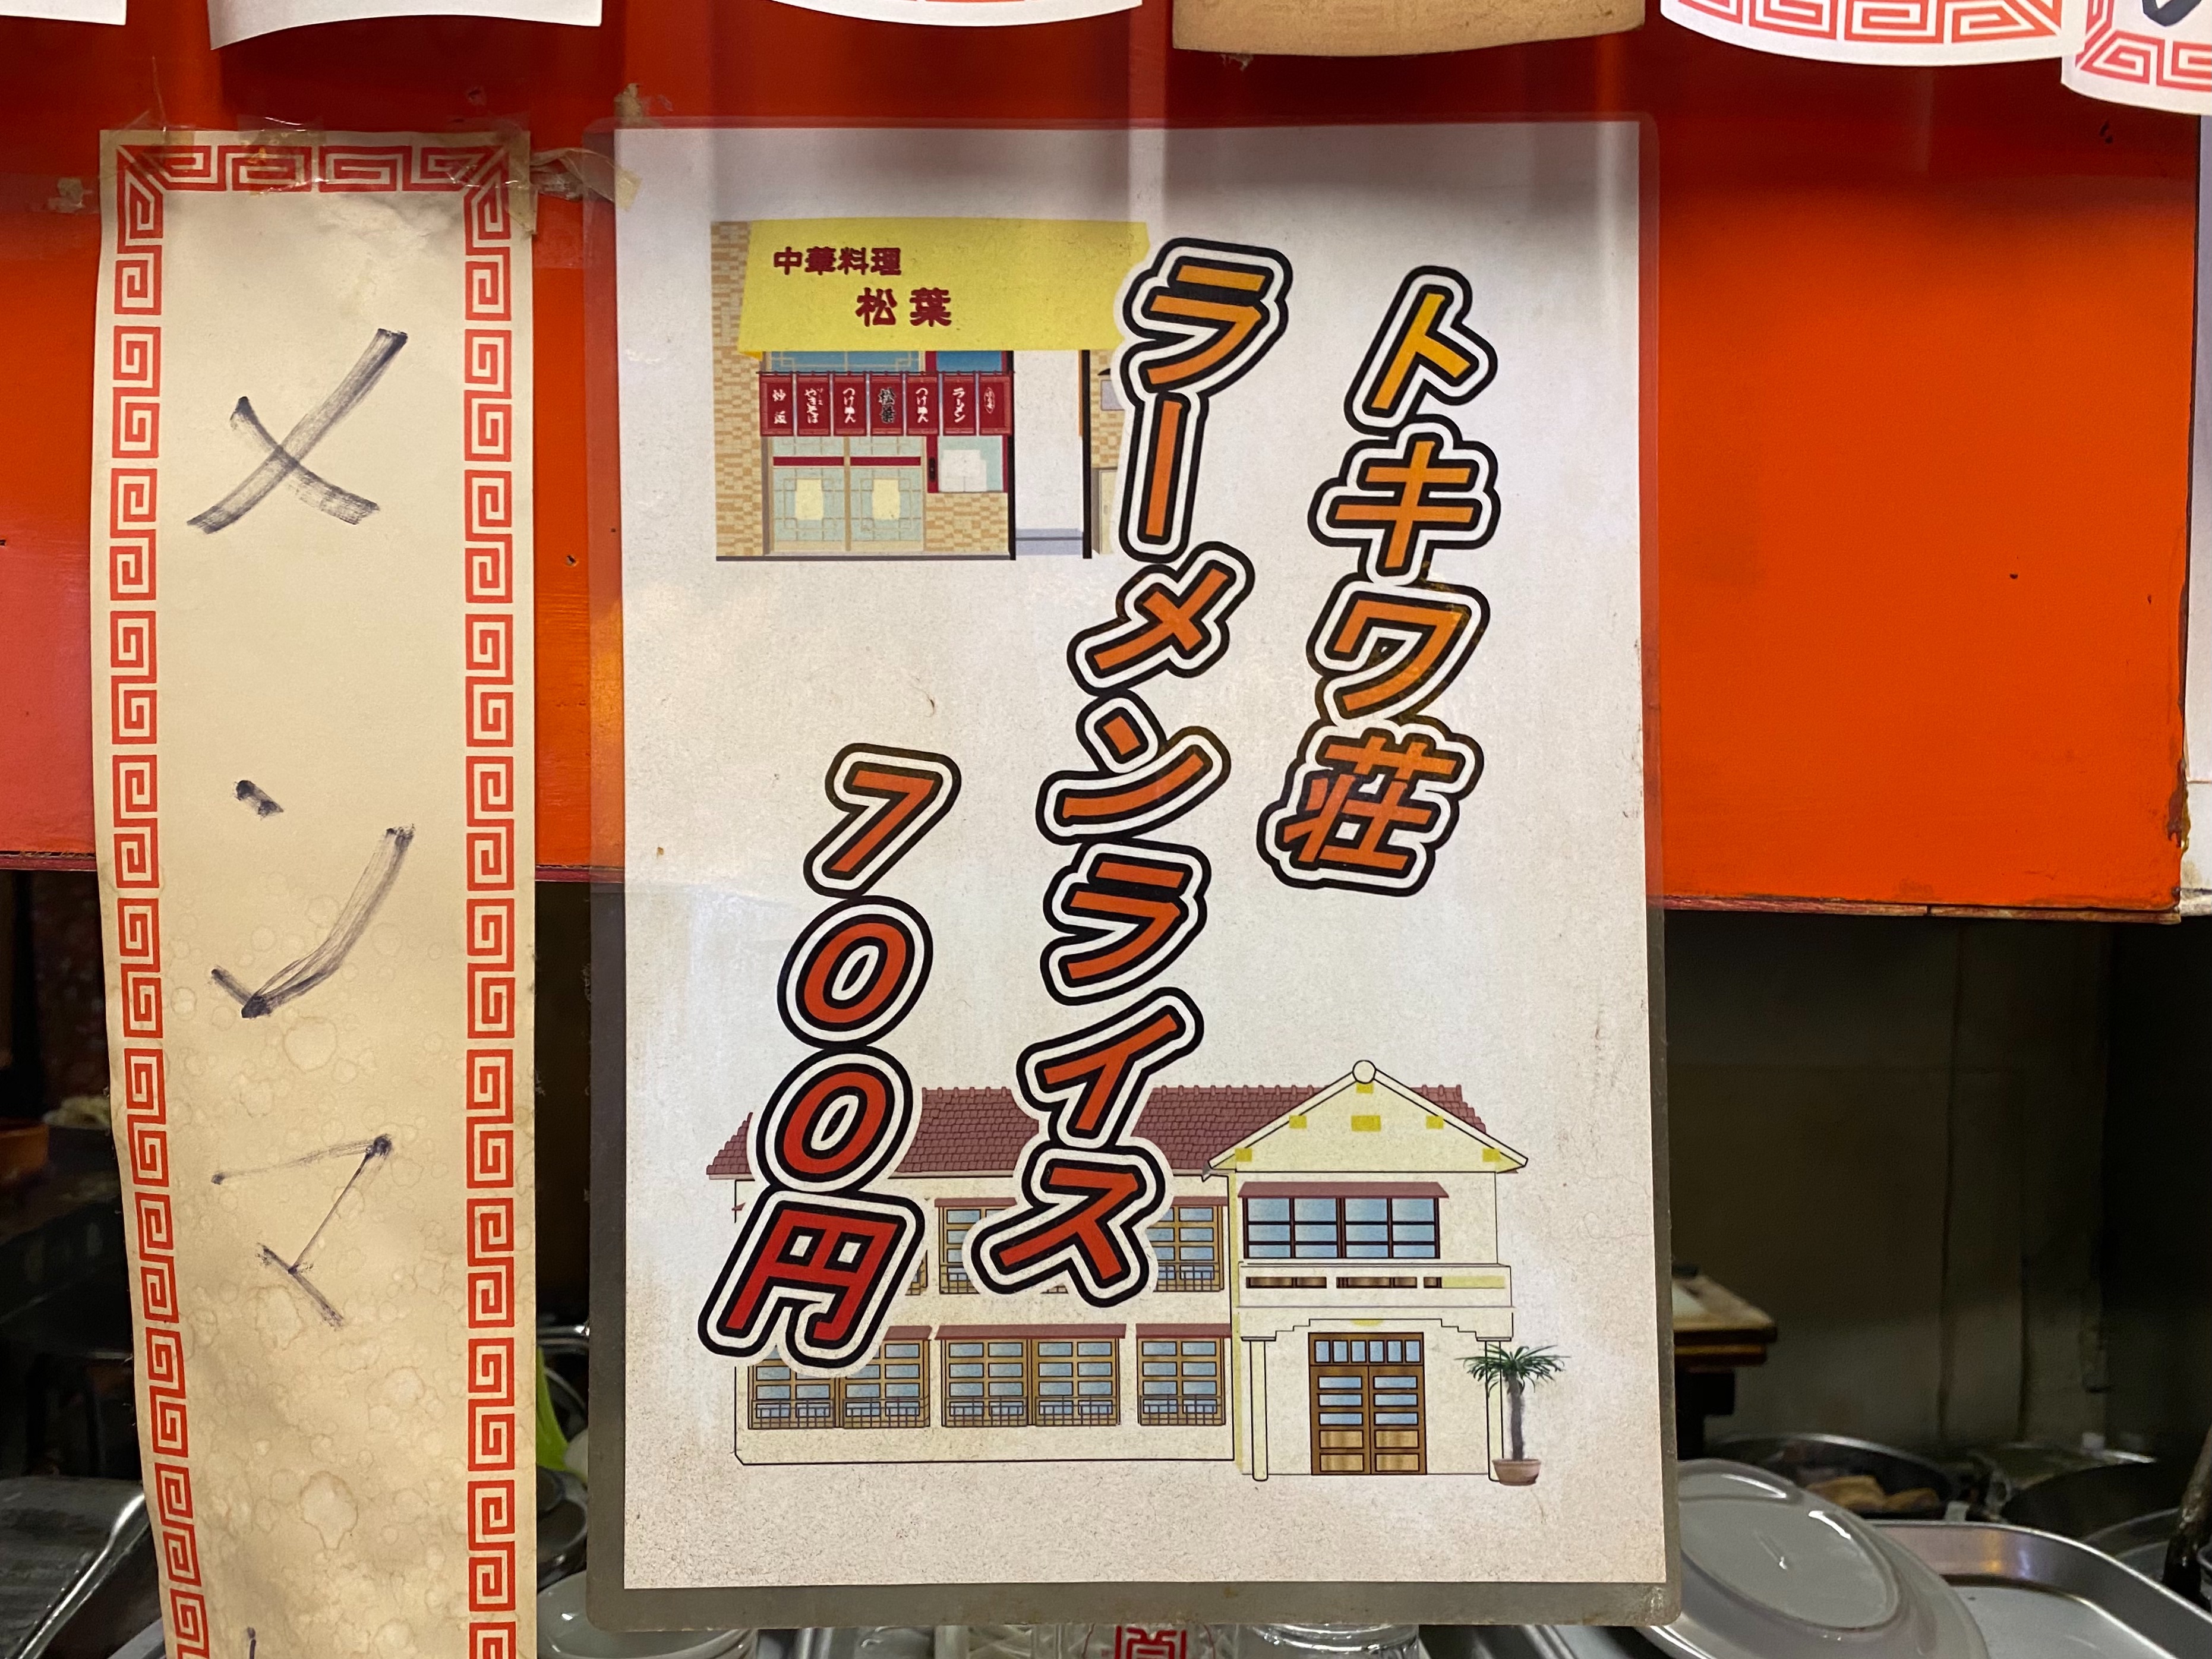 トキワ荘
ラーメンライス
700円
中華料理
松葉
ラーメン
つけめん
松葉
つけめん
やきそば
炒飯
メンマ